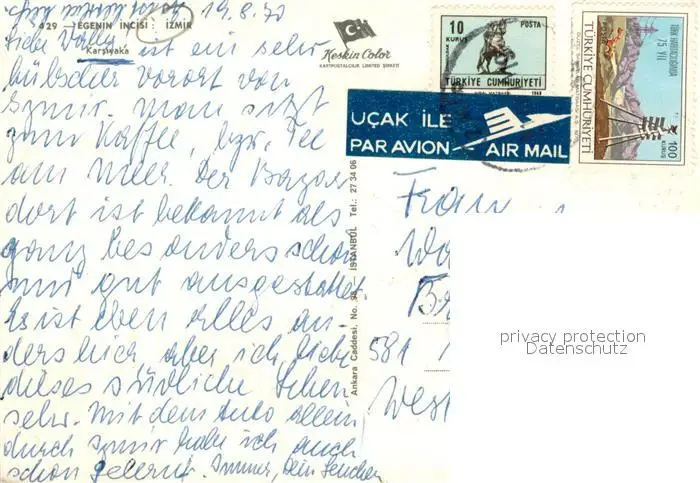 19.8.70
429 — EGENİN İNCİSİ: İZMİR
Karşıyaka
Keskin Color
KARTPOSTALCILIK LIMITED ŞİRKETİ
Liebe
ist ein sehr
hübscher Vorort von
Izmir. Man sitzt
zum Kaffee, bzw. Tee
am Meer. Der Bazar
dort ist bekannt als
ganz besonders schön
und gut ausgestattet.
Es ist eben alles an-
ders hier aber ich liebe
dieses südliche Leben
sehr. Mit dem Auto allein
durch Izmir habe ich auch
schon gelernt. Immer, Dein
Ankara Caddesi, No. 98 İSTANBUL Tel.: 27 34 06
10
KURUŞ
POSTA
TÜRKİYE CUMHURİYETİ
TÜRKİYE CUMHURİYETİ
75. YILI
100
KURUŞ
UÇAK İLE
PAR AVION AIR MAIL
Frau
581
West
privacy protection
Datenschutz